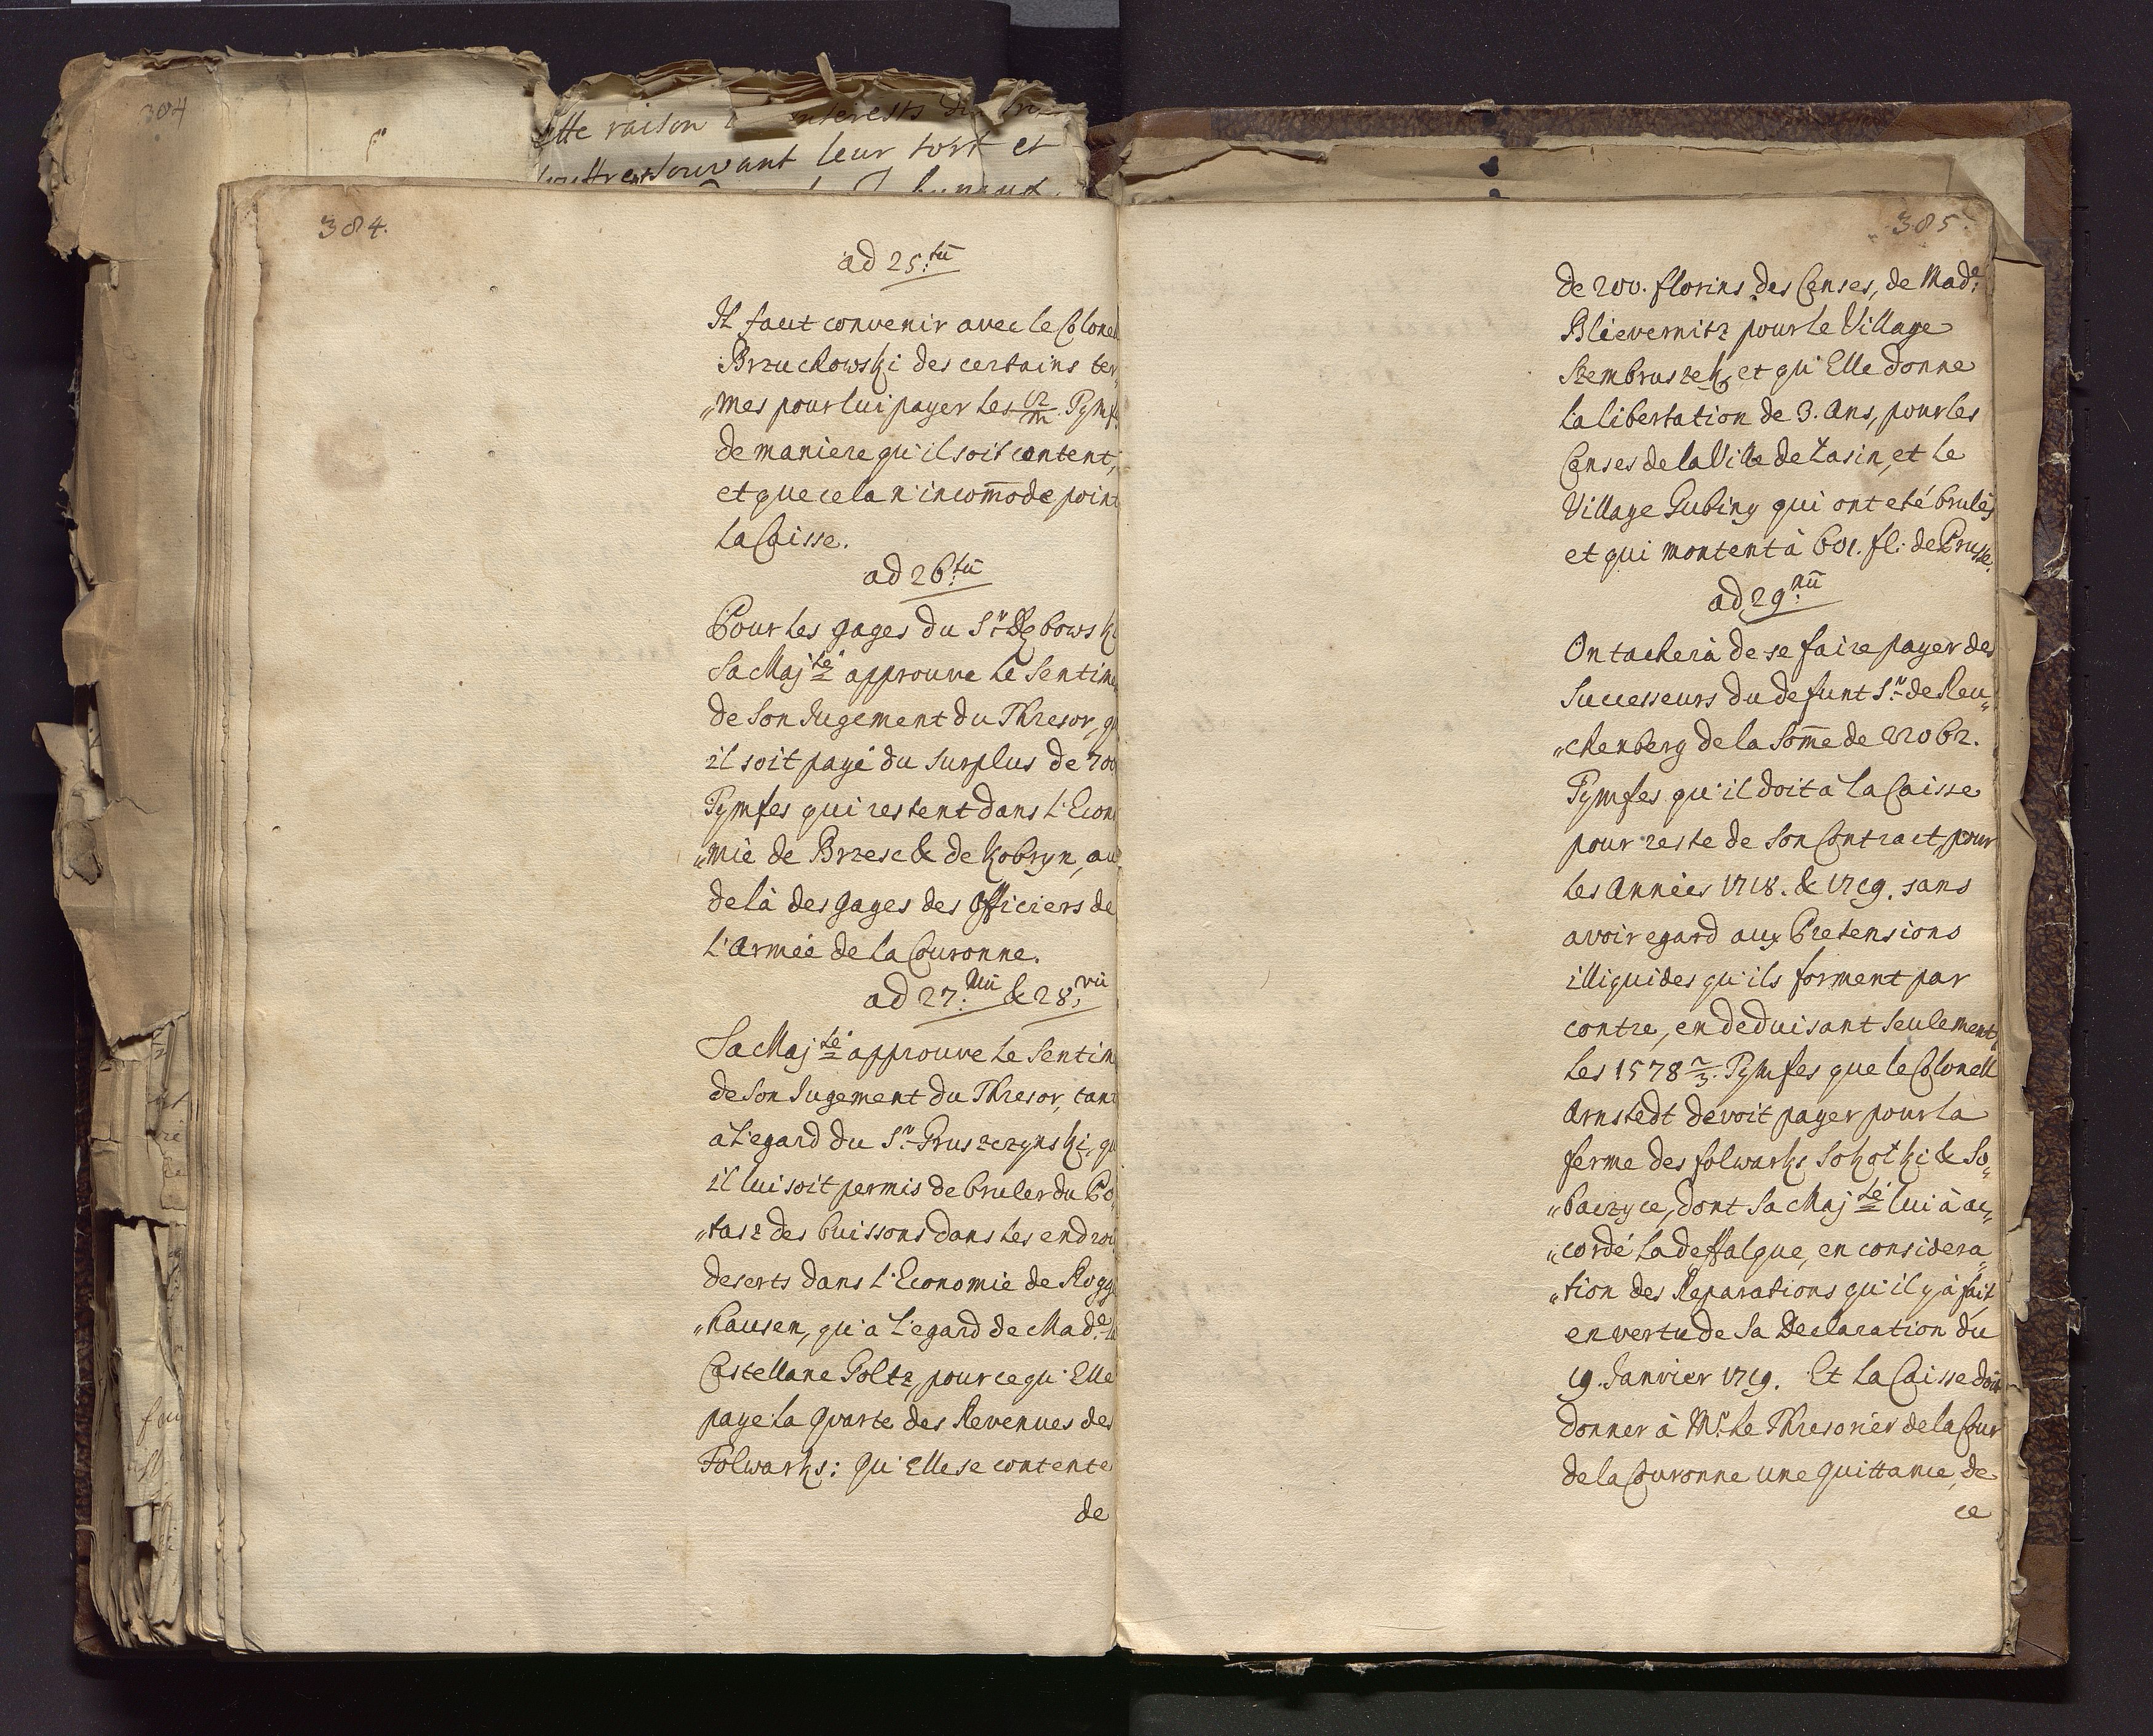 304
ette raison
interests
leur tort et
384.
ad 25.tū
Il faut convenir avec le Colonel
Brzuchowski des certains ter„
„mes pour lui payer les 12/m Tymf.
de maniere qu'il soit content,
et que cela n'incom̄ode point
la Caisse.
ad 26.tū
Pour les gages du Sr. Dębowski
Sa Majté approuve le Sentime
de Son Jugement du Thresor, qu
il soit payé du surplus de 700
Tymfes qui restent dans l'Econo
„mie de Brzesc & de Kobryn, au
delà des Gages des Officiers de
l'Armée de la Couronne.
ad 27.mū & 28.vū
Sa Majté approuve le Sentim
de Son Jugement du Thresor, tant
à l'egard du Sr. Pruszczynski, qu
il lui soit permis de bruler du Po„
„tasz des buissons dans les endroi
deserts dans l'Economie de Rogge
„hausen, qu'à l'egard de Made. la
Castellane Goltz, pour ce qu'Elle
paye la Quarte des Revenues des
Folwarks: qu'Elle se contente
de
385.
de 200. florins des Censes, de Made.
Blievernitz pour le Village
Szembruszek, et qu'Elle donne
la libertation de 3. Ans, pour les
Censes de la Ville de Łasin, et le
Village Gubiny qui ont eté brulés
et qui montent à 601. fl: de Prusse.
ad 29.nū
On tachera de se faire payer des
Successeurs du defunt Sr. de Reu„
„chenberg de la Som̄e de 22062.
Tymfes qu'il doit à la Caisse
pour reste de Son Contract, pour
les Années 1718. & 1719. sans
avoir egard aux Pretensions
illiquides qu'ils forment par
contre, en deduisant seulement
les 1578 2/3. Tymfes que le Colonell
Arnstedt devoit payer pour la
ferme des folwarks Sokołki & So„
„baczyce, dont Sa Majté lui à ac„
„cordé la deffalque, en considera„
„tion des Reparations qu'il y à fait
en vertu de Sa Declaration du
19. Janvier 1719. Et la Caisse doit
donner à Mr. le Thresorier de la Cour
de la Couronne une quittance, de
ce